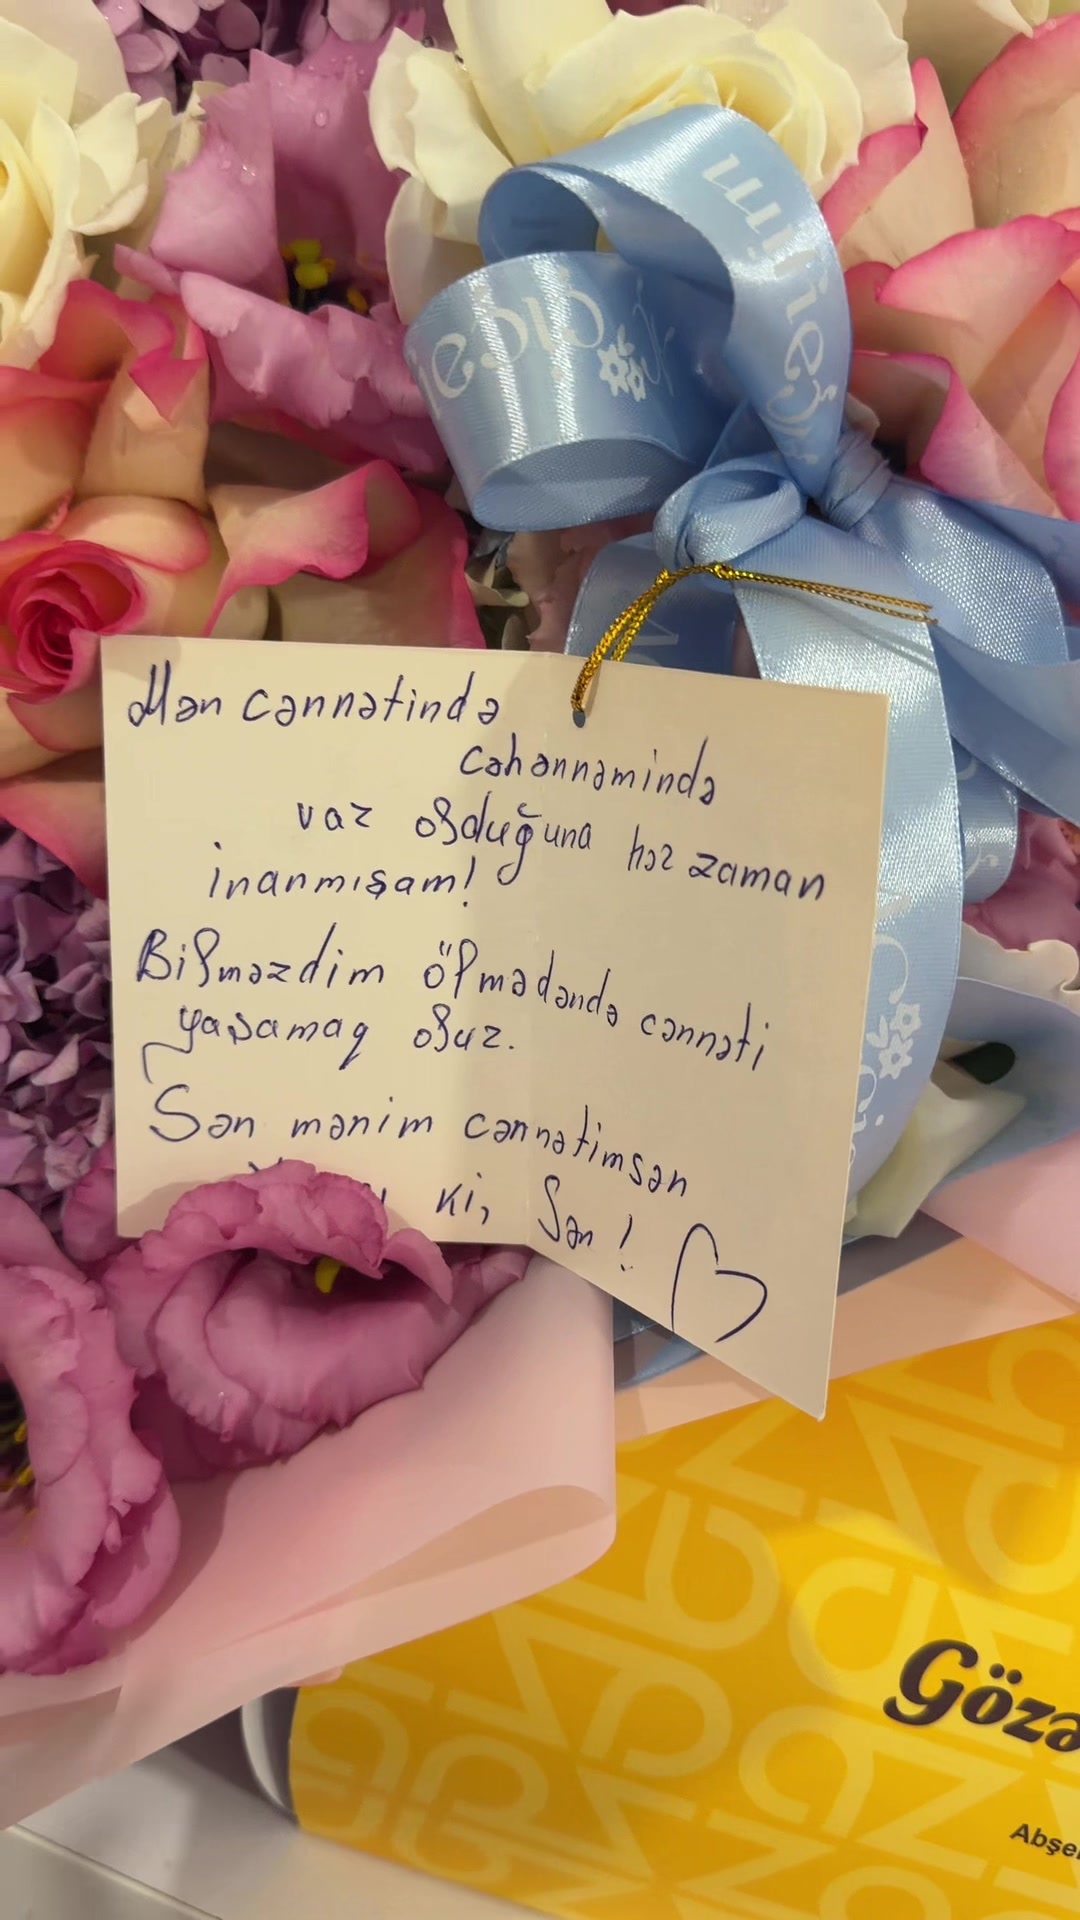 Mən cənnətində
cəhənnəmində
var olduğuna hər zaman
inanmışam!
Bilməzdim ölmədəndə cənnəti
yaşamaq olur.
Sən mənim cənnətimsən
ki, Sən!
Gözə
Abşe